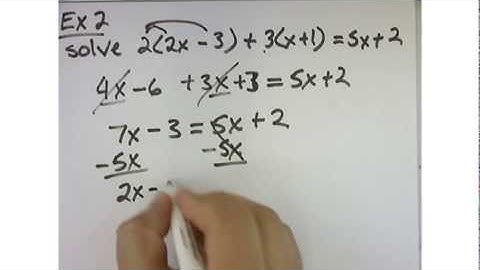 Ex 2
solve 2(2x - 3) + 3(x+1) = 5x + 2
4x - 6 + 3x + 3 = 5x + 2
7x - 3 = 5x + 2
-5x -5x
2x -